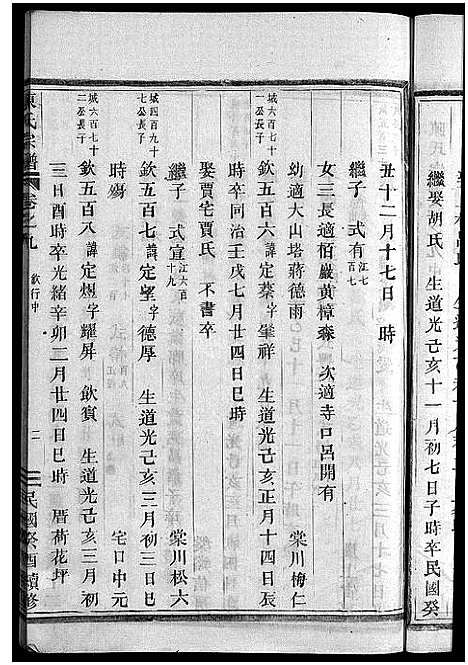 繼娶胡氏 生道光己亥十一月初七日子時卒民國癸
丑十二月十七日 時
繼子 式有 江七百七
女三長適栢巖黃樟森 次適寺口呂開有
幼適大山塔蔣德雨 棠川梅仁
城六百七十一公長子 欽五百六 諱定棻 字肇祥 生道光己亥正月十四日辰
時卒同治壬戌七月廿四日巳時
娶賈宅賈氏 不書卒
繼子 式宣 江六百十九 棠川松六
城四百九十七公長子 欽五百七 諱定堃 字德厚 生道光己亥二月初三日亥
時殤 宅口中元
城六百七十二公長子 欽五百八 諱定煜 字耀屏 飲賓 生道光己亥三月初
三日酉時卒光緒辛卯二月廿四日巳時 厝荷花坪
陳氏宗譜 卷之九 欽行中 二 民國癸酉續修